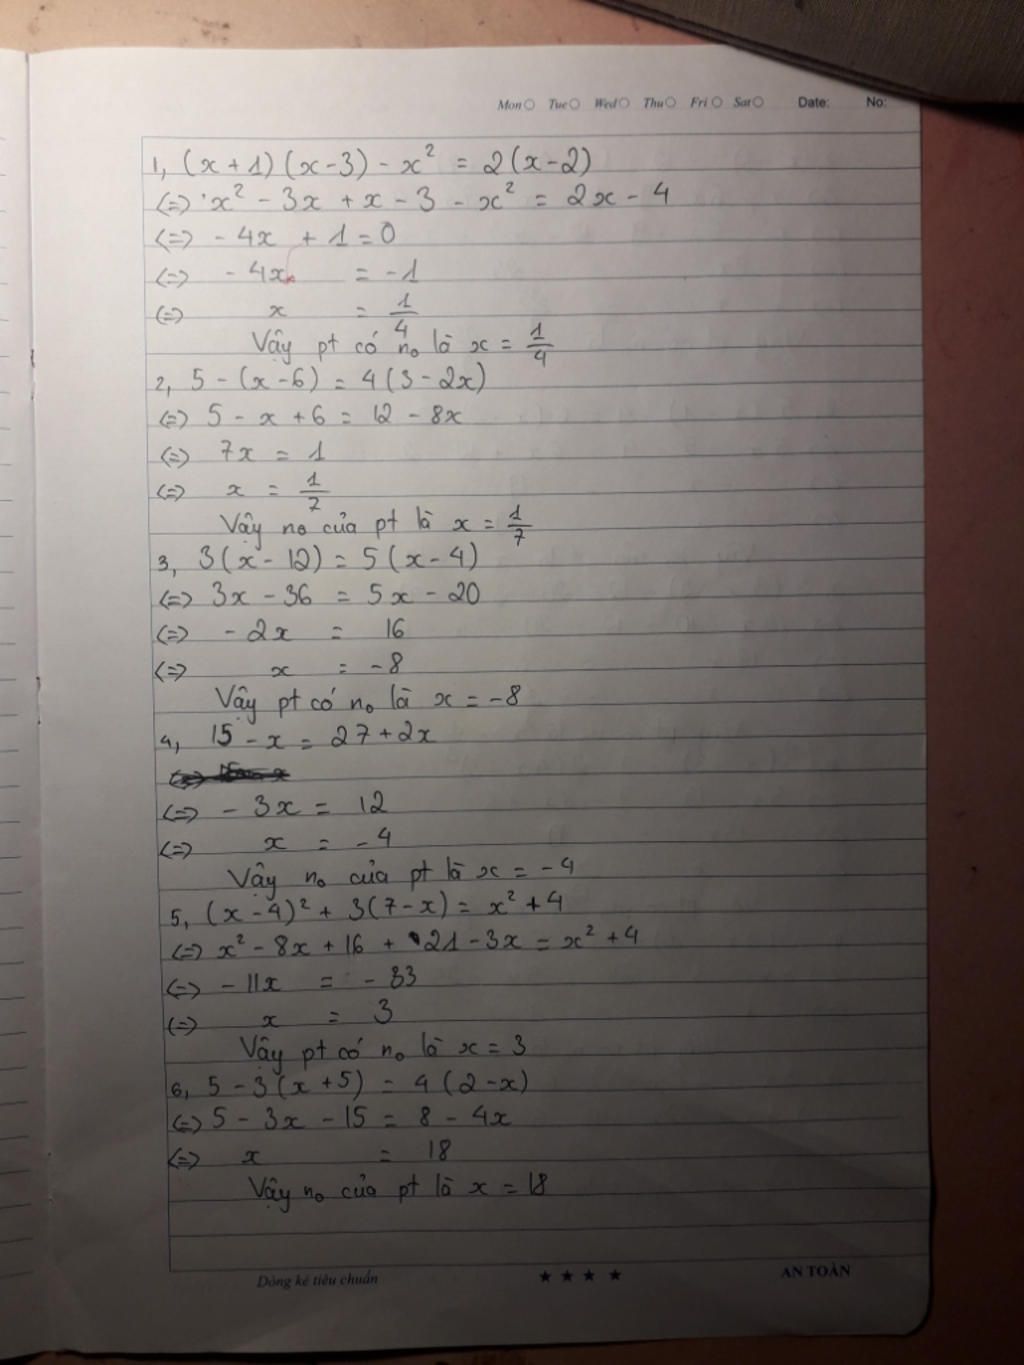 Mon Tue Wed Thu Fri Sat Date: No:
1, (x+1)(x-3) - x² = 2(x-2)
<=> x² - 3x + x - 3 - x² = 2x - 4
<=> - 4x + 1 = 0
<=> - 4x = -1
<=> x = 1/4
Vậy pt có no là x = 1/4
2, 5 - (x-6) = 4(3-2x)
<=> 5 - x + 6 = 12 - 8x
<=> 7x = 1
<=> x = 1/7
Vậy no của pt là x = 1/7
3, 3(x-12) = 5(x-4)
<=> 3x - 36 = 5x - 20
<=> - 2x = 16
<=> x = -8
Vậy pt có no là x = -8
4, 15 - x = 27 + 2x
<=> - 3x = 12
<=> x = -4
Vậy no của pt là x = -4
5, (x-4)² + 3(7-x) = x² + 4
<=> x² - 8x + 16 + 21 - 3x = x² + 4
<=> - 11x = - 33
<=> x = 3
Vậy pt có no là x = 3
6, 5 - 3(x+5) = 4(2-x)
<=> 5 - 3x - 15 = 8 - 4x
<=> x = 18
Vậy no của pt là x = 18
Dòng kẻ tiêu chuẩn ★ ★ ★ ★ AN TOÀN